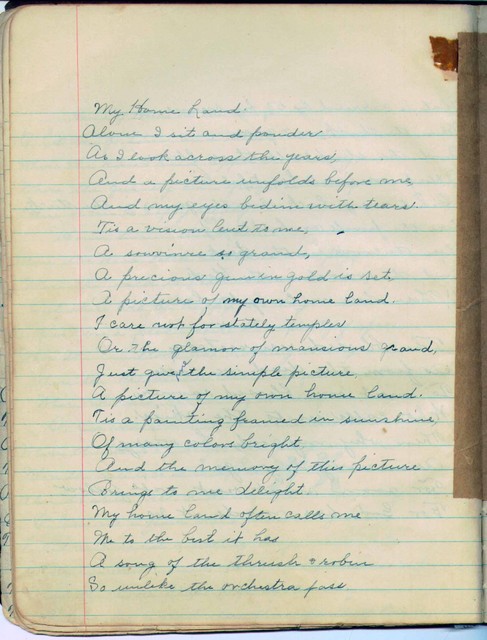 My Home Land.
Alone I sit and ponder
As I look across the years,
And a picture unfolds before me,
And my eyes bedim with tears
Tis a vision lent to me,
A souvinre so grand,
A precious gem in gold is set.
A picture of my own home land.
I care not for stately temples
Or the glamor of mansions grand,
Just give the simple picture
A picture of my own home land.
Tis a painting framed in sunshine,
Of many colors bright
And the memory of this picture
Brings to me delight
My home land often calls me
Me to the best it has
A song of the thrush & robin
So unlike the orchestra